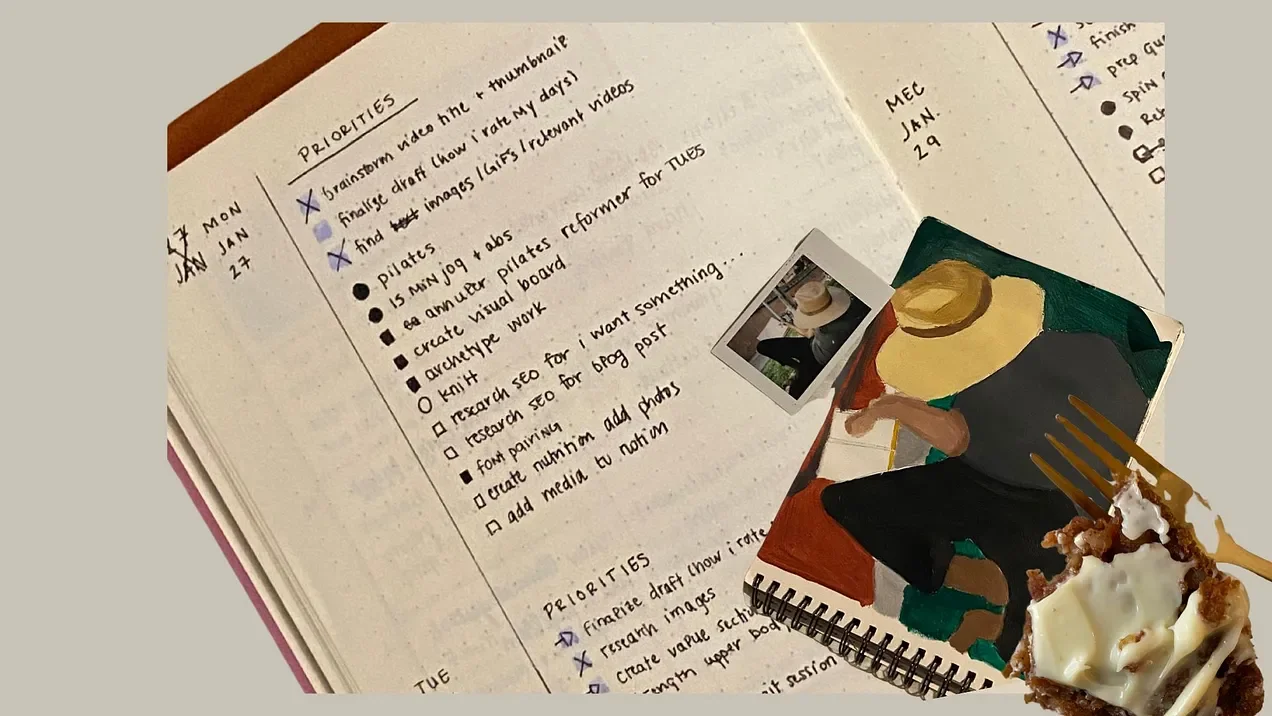 PRIORITIES
brainstorm video title + thumbnail
finalize draft (how i rate my days)
find images / GIFs / relevant videos
17 MON
JAN JAN
27
pilates
15 MIN jog + abs
annuler pilates reformer for TUES
create visual board
archetype work
knitt
research SEO for i want something...
research SEO for blog post
font pairing
create nutrition add photos
add media to notion
TUE
PRIORITIES
finalize draft (how i rate
research images
create value
upper
session
MEC
JAN.
29
finish
prep
spin